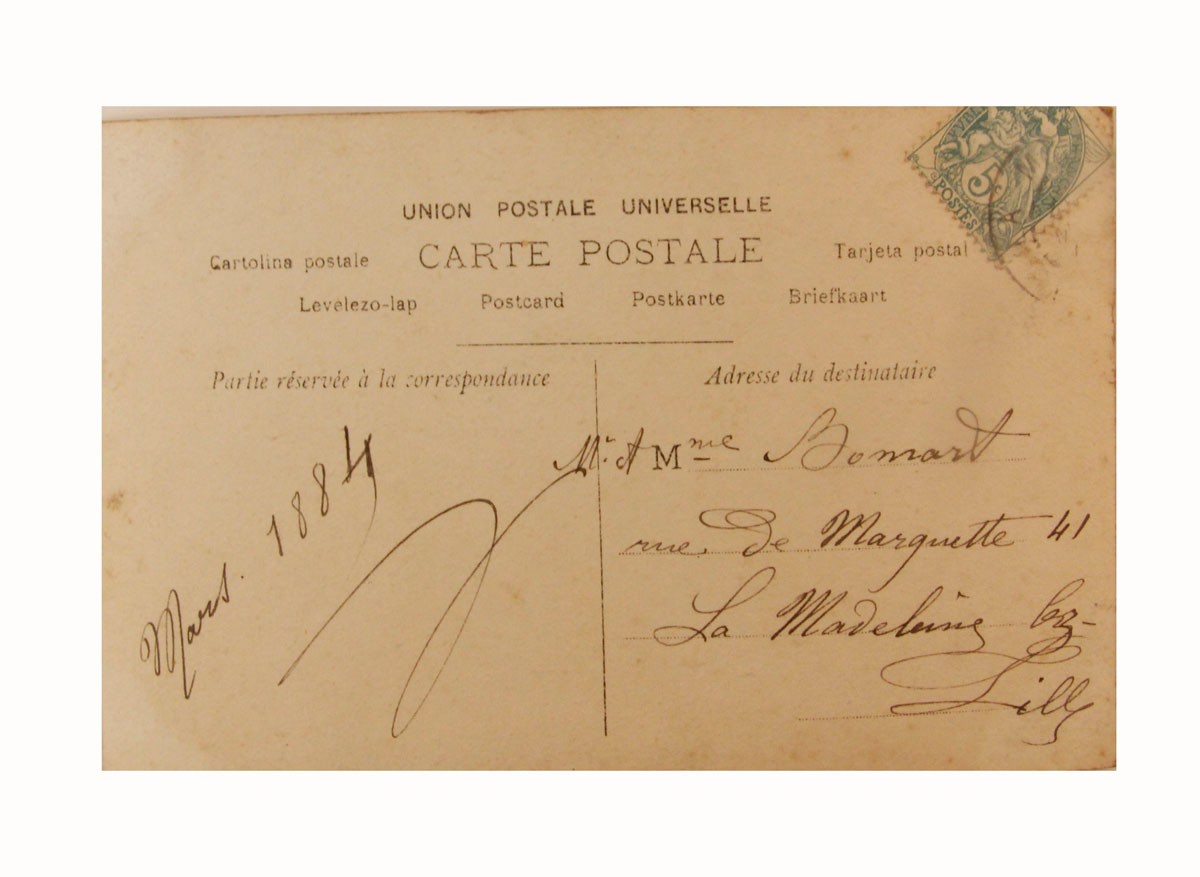 UNION POSTALE UNIVERSELLE
Cartolina postale CARTE POSTALE Tarjeta postal
Levelezo-lap Postcard Postkarte Briefkaart
Partie réservée à la correspondance
Adresse du destinataire
Mars. 1884
Mr. A Mme Bomart
rue. De Marquette 41
La Madeleine lez-
Lille
5
POSTES